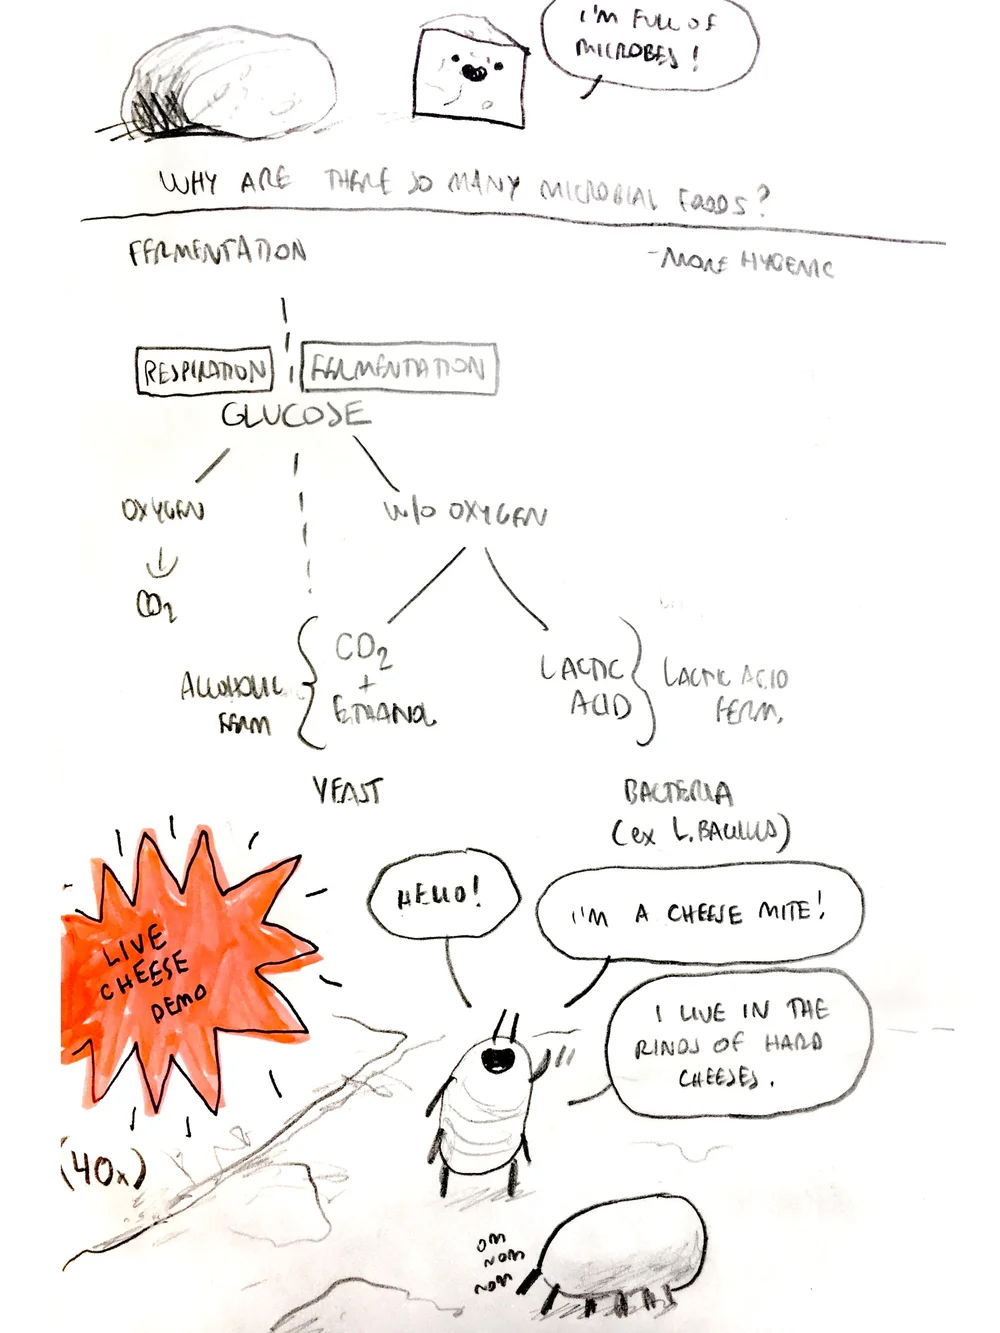 I'M FULL OF
MICROBES!
WHY ARE THERE SO MANY MICROBIAL FOODS?
FERMENTATION
- MORE HYGENIC
RESPIRATION
FERMENTATION
GLUCOSE
OXYGEN
W/O OXYGEN
CO2
CO2
+
ETHANOL
ALCOHOLIC
FERM
LACTIC
ACID
LACTIC ACID
FERM.
YEAST
BACTERIA
(ex L. BACILLUS)
LIVE
CHEESE
DEMO
HELLO!
I'M A CHEESE MITE!
I LIVE IN THE
RINDS OF HARD
CHEESES.
(40x)
OM
NOM
NOM